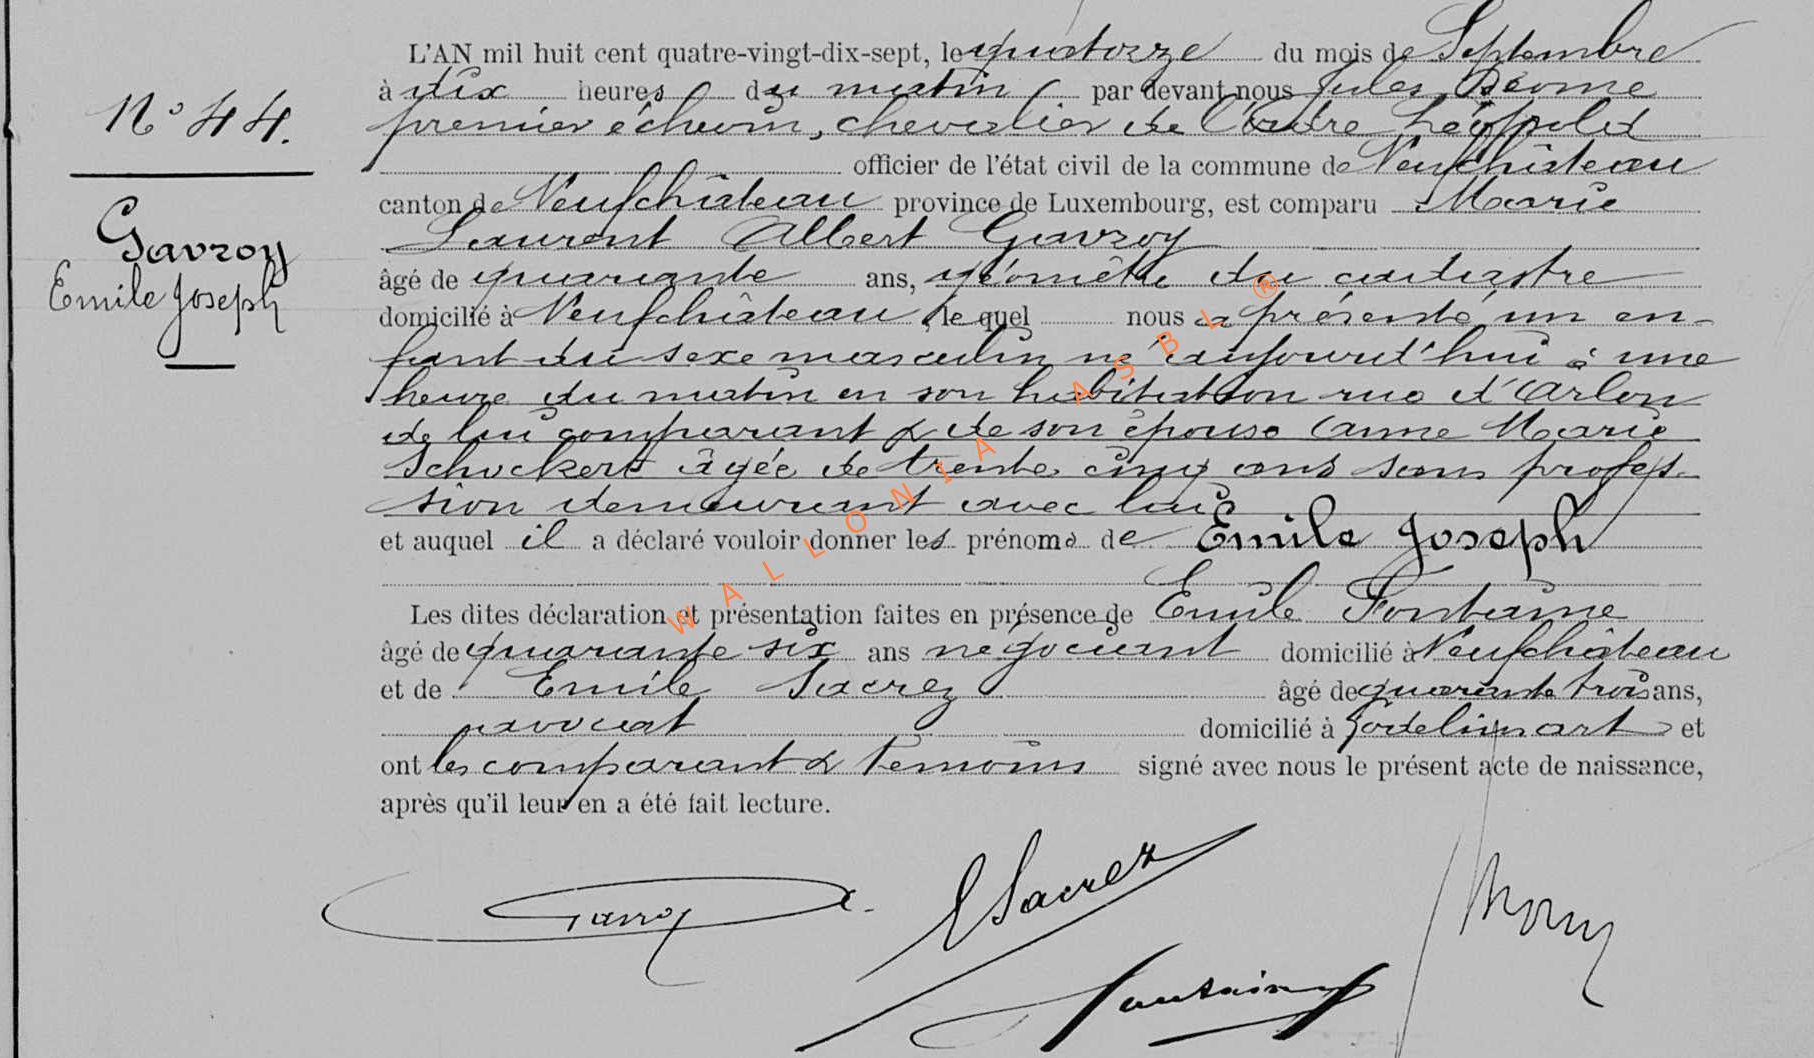 L'AN mil huit cent quatre-vingt-dix-sept, le quatorze du mois de Septembre
à dix heures du matin par devant nous Jules
premier échevin, chevalier de l'Ordre Léopold
officier de l'état civil de la commune de Neufchâteau
canton de Neufchâteau province de Luxembourg, est comparu Marie
Laurent Albert Gavroy
âgé de quarante ans, géomètre du cadastre
domicilié à Neufchâteau, lequel nous a présenté un en-
fant du sexe masculin né aujourd'hui à une
heure du matin en son habitation rue d'Arlon
de lui comparant & de son épouse Anne Marie
Schockert âgée de trente cinq ans sans profes-
sion demeurant avec lui
et auquel il a déclaré vouloir donner les prénoms de Emile Joseph
Les dites déclaration et présentation faites en présence de Emile Fontaine
âgé de quarante six ans négociant domicilié à Neufchâteau
et de Emile Sacrez âgé de quarante trois ans,
avocat domicilié à et
ont les comparant & témoins signé avec nous le présent acte de naissance,
après qu'il leur en a été fait lecture.
N° 44.
Gavroy
Emile Joseph
Gavroy A.
E Sacrez
Fontaine
WALLONIA ASBL ®